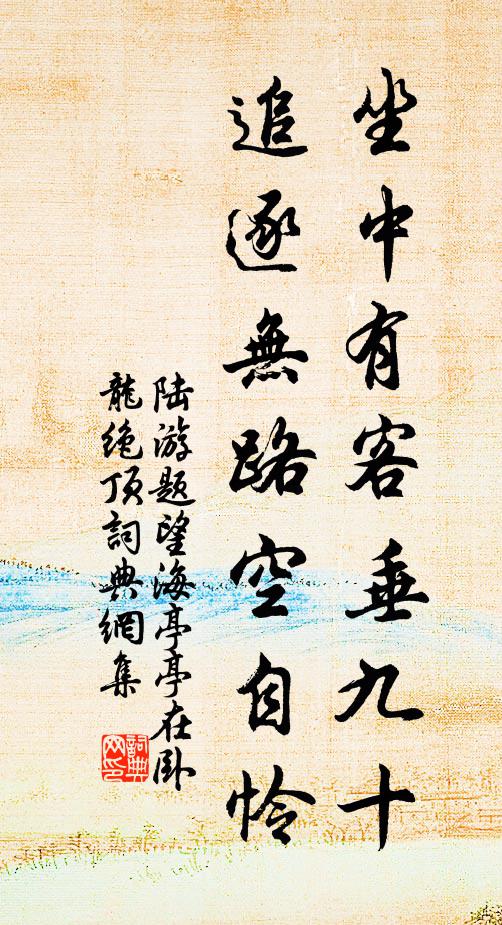 坐中有客垂九十
追逐無路空自怜
陆游题望海亭亭在卧
龍绝顶詞典網集
詞典
网印